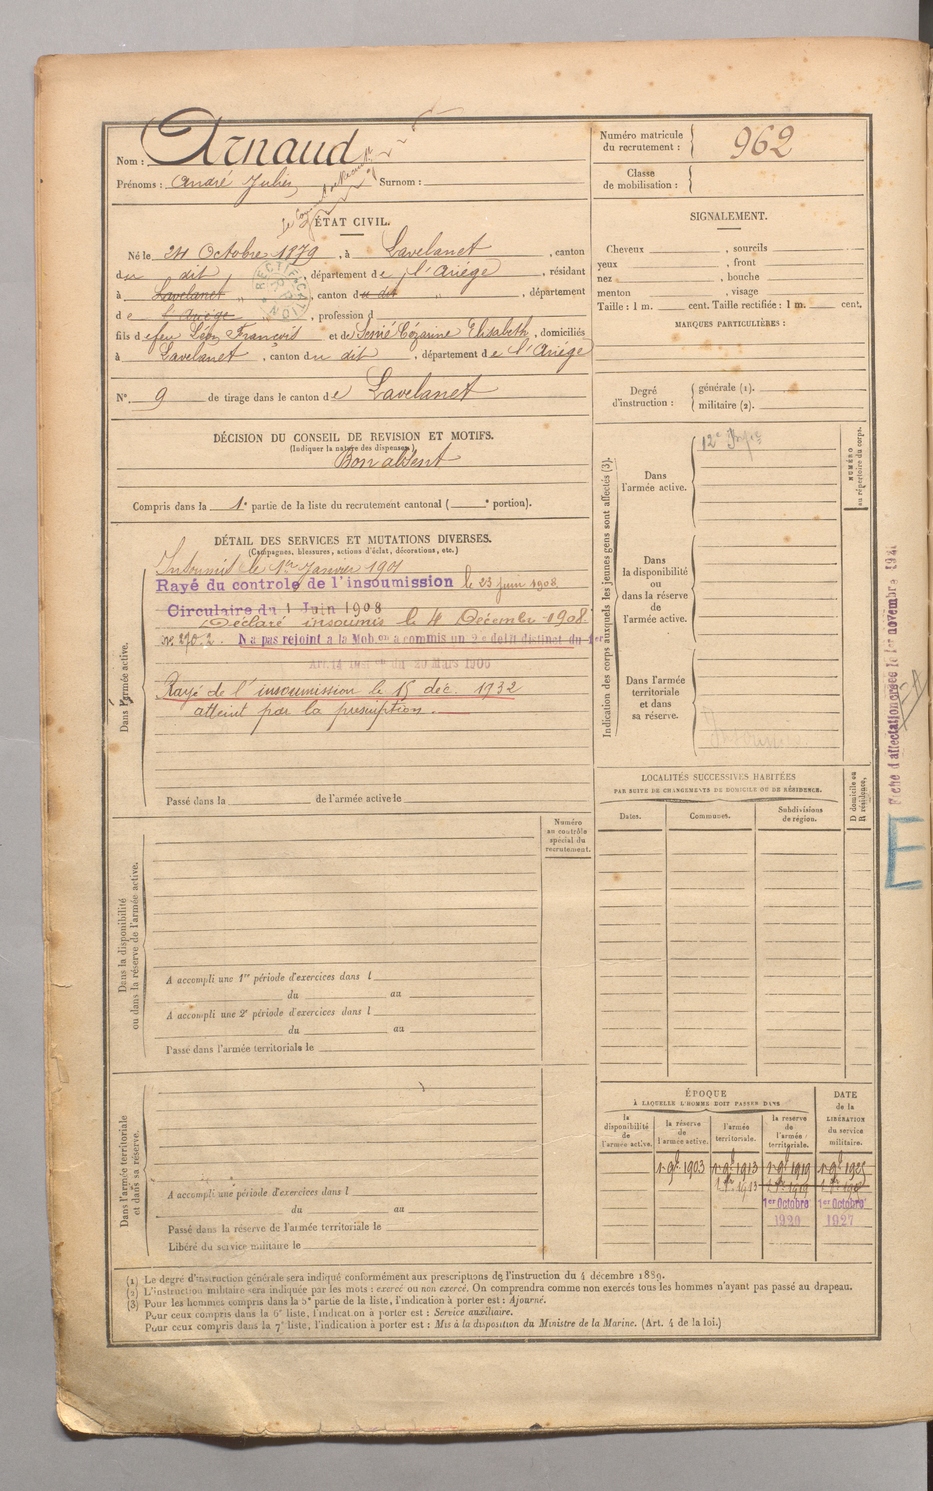 Nom : Arnaud
Prénoms : André Julien Surnom :
ÉTAT CIVIL.
Né le 24 Octobre 1879, à Lavelanet, canton
du dit, département de l'Ariége, résidant
à Lavelanet, canton du dit, département
de l'Ariège, profession d
fils de feu Léon François et de Elisabeth, domiciliés
à Lavelanet, canton du dit, département de l'Ariége
N° 9 de tirage dans le canton de Lavelanet
DÉCISION DU CONSEIL DE REVISION ET MOTIFS.
(Indiquer la nature des dispenses.)
Bon absent
Compris dans la 1e partie de la liste du recrutement cantonal ( e portion).
DÉTAIL DES SERVICES ET MUTATIONS DIVERSES.
(Campagnes, blessures, actions d'éclat, décorations, etc.)
Dans l'armée active.
Insoumis le 1er Janvier 1901
Rayé du controle de l'insoumission le 23 juin 1908
Circulaire du 1 Juin 1908
Déclaré insoumis le 4 Décembre 1908
N'a pas rejoint a la Mob.on a commis un 2e delit distinct du 1er
du 20 Mars 1906
Rayé de l'insoumission le 15 déc. 1932
atteint par la prescription.
Passé dans la de l'armée active le
Numéro
au contrôle
spécial du
recrutement.
Dans la disponibilité
ou dans la réserve de l'armée active.
A accompli une 1re période d'exercices dans l
du au
A accompli une 2e période d'exercices dans l
du au
Passé dans l'armée territoriale le
Dans l'armée territoriale
et dans sa réserve.
A accompli une période d'exercices dans l
du au
Passé dans la réserve de l'armée territoriale le
Libéré du service militaire le
Numéro matricule
du recrutement : 962
Classe
de mobilisation :
SIGNALEMENT.
Cheveux , sourcils
yeux , front
nez , bouche
menton , visage
Taille : 1 m. cent. Taille rectifiée : 1 m. cent.
MARQUES PARTICULIÈRES :
Degré
d'instruction :
générale (1).
militaire (2).
Indication des corps auxquels les jeunes gens sont affectés (3).
NUMÉRO
au répertoire du corps.
Dans
l'armée active.
12e
Dans
la disponibilité
ou
dans la réserve
de
l'armée active.
Dans l'armée
territoriale
et dans
sa réserve.
Fiche d'affectation créée le 1er novembre 1921
E
LOCALITÉS SUCCESSIVES HABITÉES
PAR SUITE DE CHANGEMENTS DE DOMICILE OU DE RÉSIDENCE.
Dates.
Communes.
Subdivisions
de région.
D domicile ou
R résidence.
ÉPOQUE
À LAQUELLE L'HOMME DOIT PASSER DANS
DATE
de la
LIBÉRATION
du service
militaire.
la
disponibilité
de
l'armée active.
la réserve
de
l'armée active.
l'armée
territoriale.
la reserve
de
l'armée
territoriale.
1903 1913 1919 1925
1913 1919
1er Octobre 1er Octobre
1920 1927
(1) Le degré d'instruction générale sera indiqué conformément aux prescriptions de l'instruction du 4 décembre 1889.
(2) L'instruction militaire sera indiquée par les mots : exercé ou non exercé. On comprendra comme non exercés tous les hommes n'ayant pas passé au drapeau.
(3) Pour les hommes compris dans la 5e partie de la liste, l'indication à porter est : Ajourné.
Pour ceux compris dans la 6e liste, l'indication à porter est : Service auxiliaire.
Pour ceux compris dans la 7e liste, l'indication à porter est : Mis à la disposition du Ministre de la Marine. (Art. 4 de la loi.)